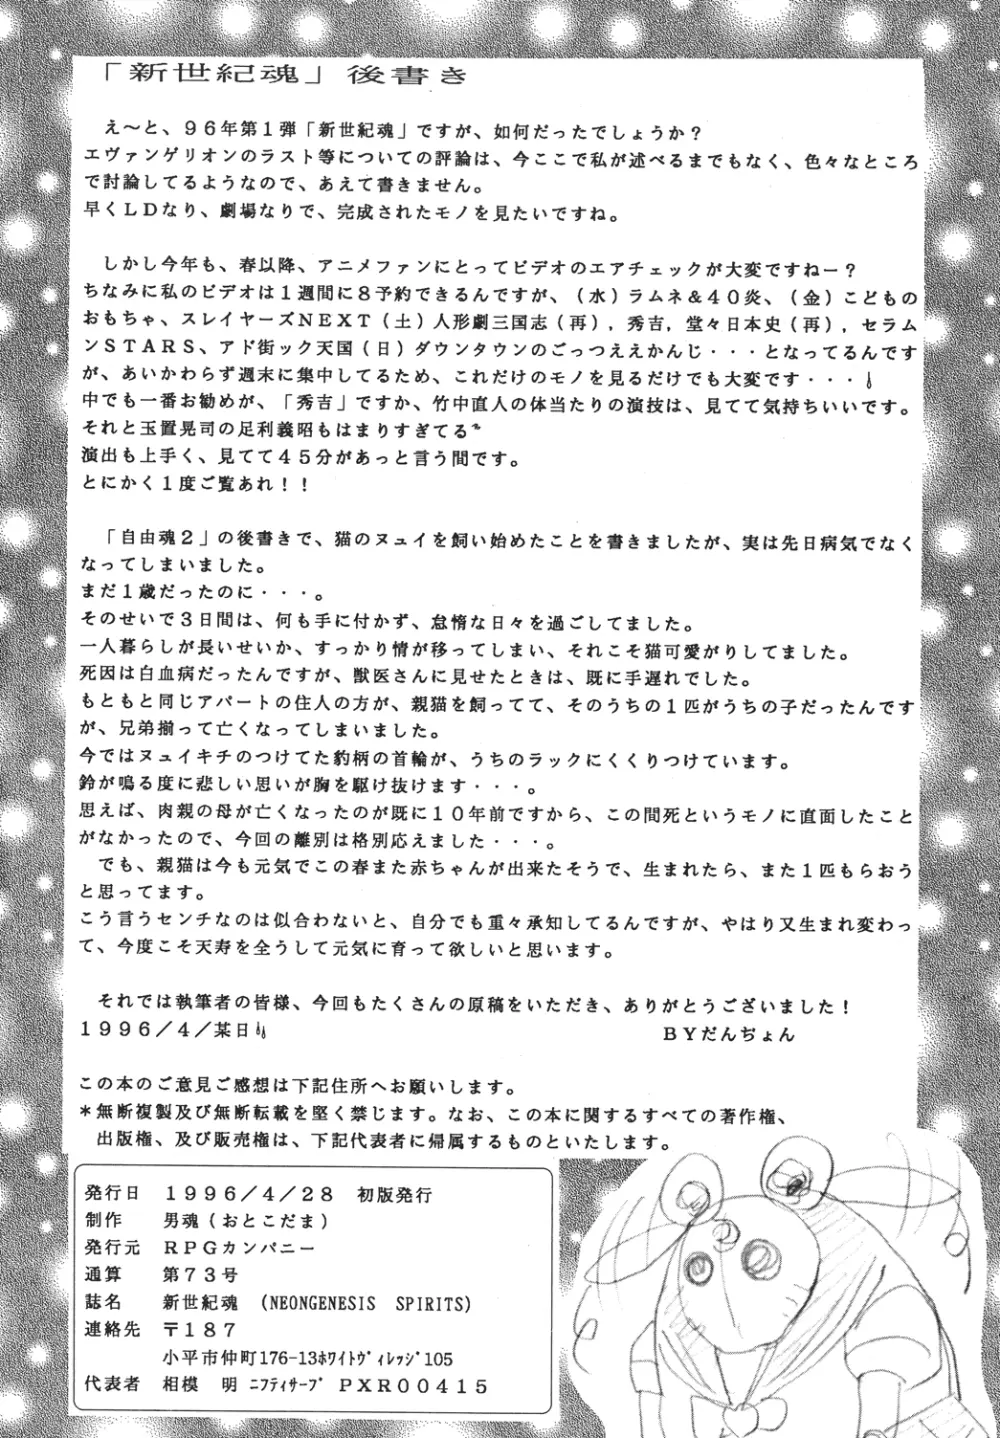 「新世紀魂」後書き
え〜と、９６年第１弾「新世紀魂」ですが、如何だったでしょうか？
エヴァンゲリオンのラスト等についての評論は、今ここで私が述べるまでもなく、色々なところ
で討論してるようなので、あえて書きません。
早くＬＤなり、劇場なりで、完成されたモノを見たいですね。
しかし今年も、春以降、アニメファンにとってビデオのエアチェックが大変ですねー？
ちなみに私のビデオは１週間に８予約できるんですが、（水）ラムネ＆４０炎、（金）こどもの
おもちゃ、スレイヤーズＮＥＸＴ（土）人形劇三国志（再），秀吉，堂々日本史（再），セラム
ンＳＴＡＲＳ、アド街ック天国（日）ダウンタウンのごっつええかんじ・・・となってるんです
が、あいかわらず週末に集中してるため、これだけのモノを見るだけでも大変です・・・
中でも一番お勧めが、「秀吉」ですか、竹中直人の体当たりの演技は、見てて気持ちいいです。
それと玉置晃司の足利義昭もはまりすぎてる
演出も上手く、見てて４５分があっと言う間です。
とにかく１度ご覧あれ！！
「自由魂２」の後書きで、猫のヌュイを飼い始めたことを書きましたが、実は先日病気でなく
なってしまいました。
まだ１歳だったのに・・・。
そのせいで３日間は、何も手に付かず、怠惰な日々を過ごしてました。
一人暮らしが長いせいか、すっかり情が移ってしまい、それこそ猫可愛がりしてました。
死因は白血病だったんですが、獣医さんに見せたときは、既に手遅れでした。
もともと同じアパートの住人の方が、親猫を飼ってて、そのうちの１匹がうちの子だったんです
が、兄弟揃って亡くなってしまいました。
今ではヌュイキチのつけてた豹柄の首輪が、うちのラックにくくりつけています。
鈴が鳴る度に悲しい思いが胸を駆け抜けます・・・。
思えば、肉親の母が亡くなったのが既に１０年前ですから、この間死というモノに直面したこと
がなかったので、今回の離別は格別応えました・・・。
でも、親猫は今も元気でこの春また赤ちゃんが出来たそうで、生まれたら、また１匹もらおう
と思ってます。
こう言うセンチなのは似合わないと、自分でも重々承知してるんですが、やはり又生まれ変わっ
て、今度こそ天寿を全うして元気に育って欲しいと思います。
それでは執筆者の皆様、今回もたくさんの原稿をいただき、ありがとうございました！
１９９６／４／某日　ＢＹだんぢょん
この本のご意見ご感想は下記住所へお願いします。
＊無断複製及び無断転載を堅く禁じます。なお、この本に関するすべての著作権、
出版権、及び販売権は、下記代表者に帰属するものといたします。
発行日　１９９６／４／２８　初版発行
制作　男魂（おとこだま）
発行元　ＲＰＧカンパニー
通算　第７３号
誌名　新世紀魂　(NEONGENESIS SPIRITS)
連絡先　〒１８７
小平市仲町176-13ﾎﾜｲﾄｳﾞｨﾚｯｼﾞ105
代表者　相模　明　ﾆﾌﾃｨｻｰﾌﾞ　ＰＸＲ００４１５